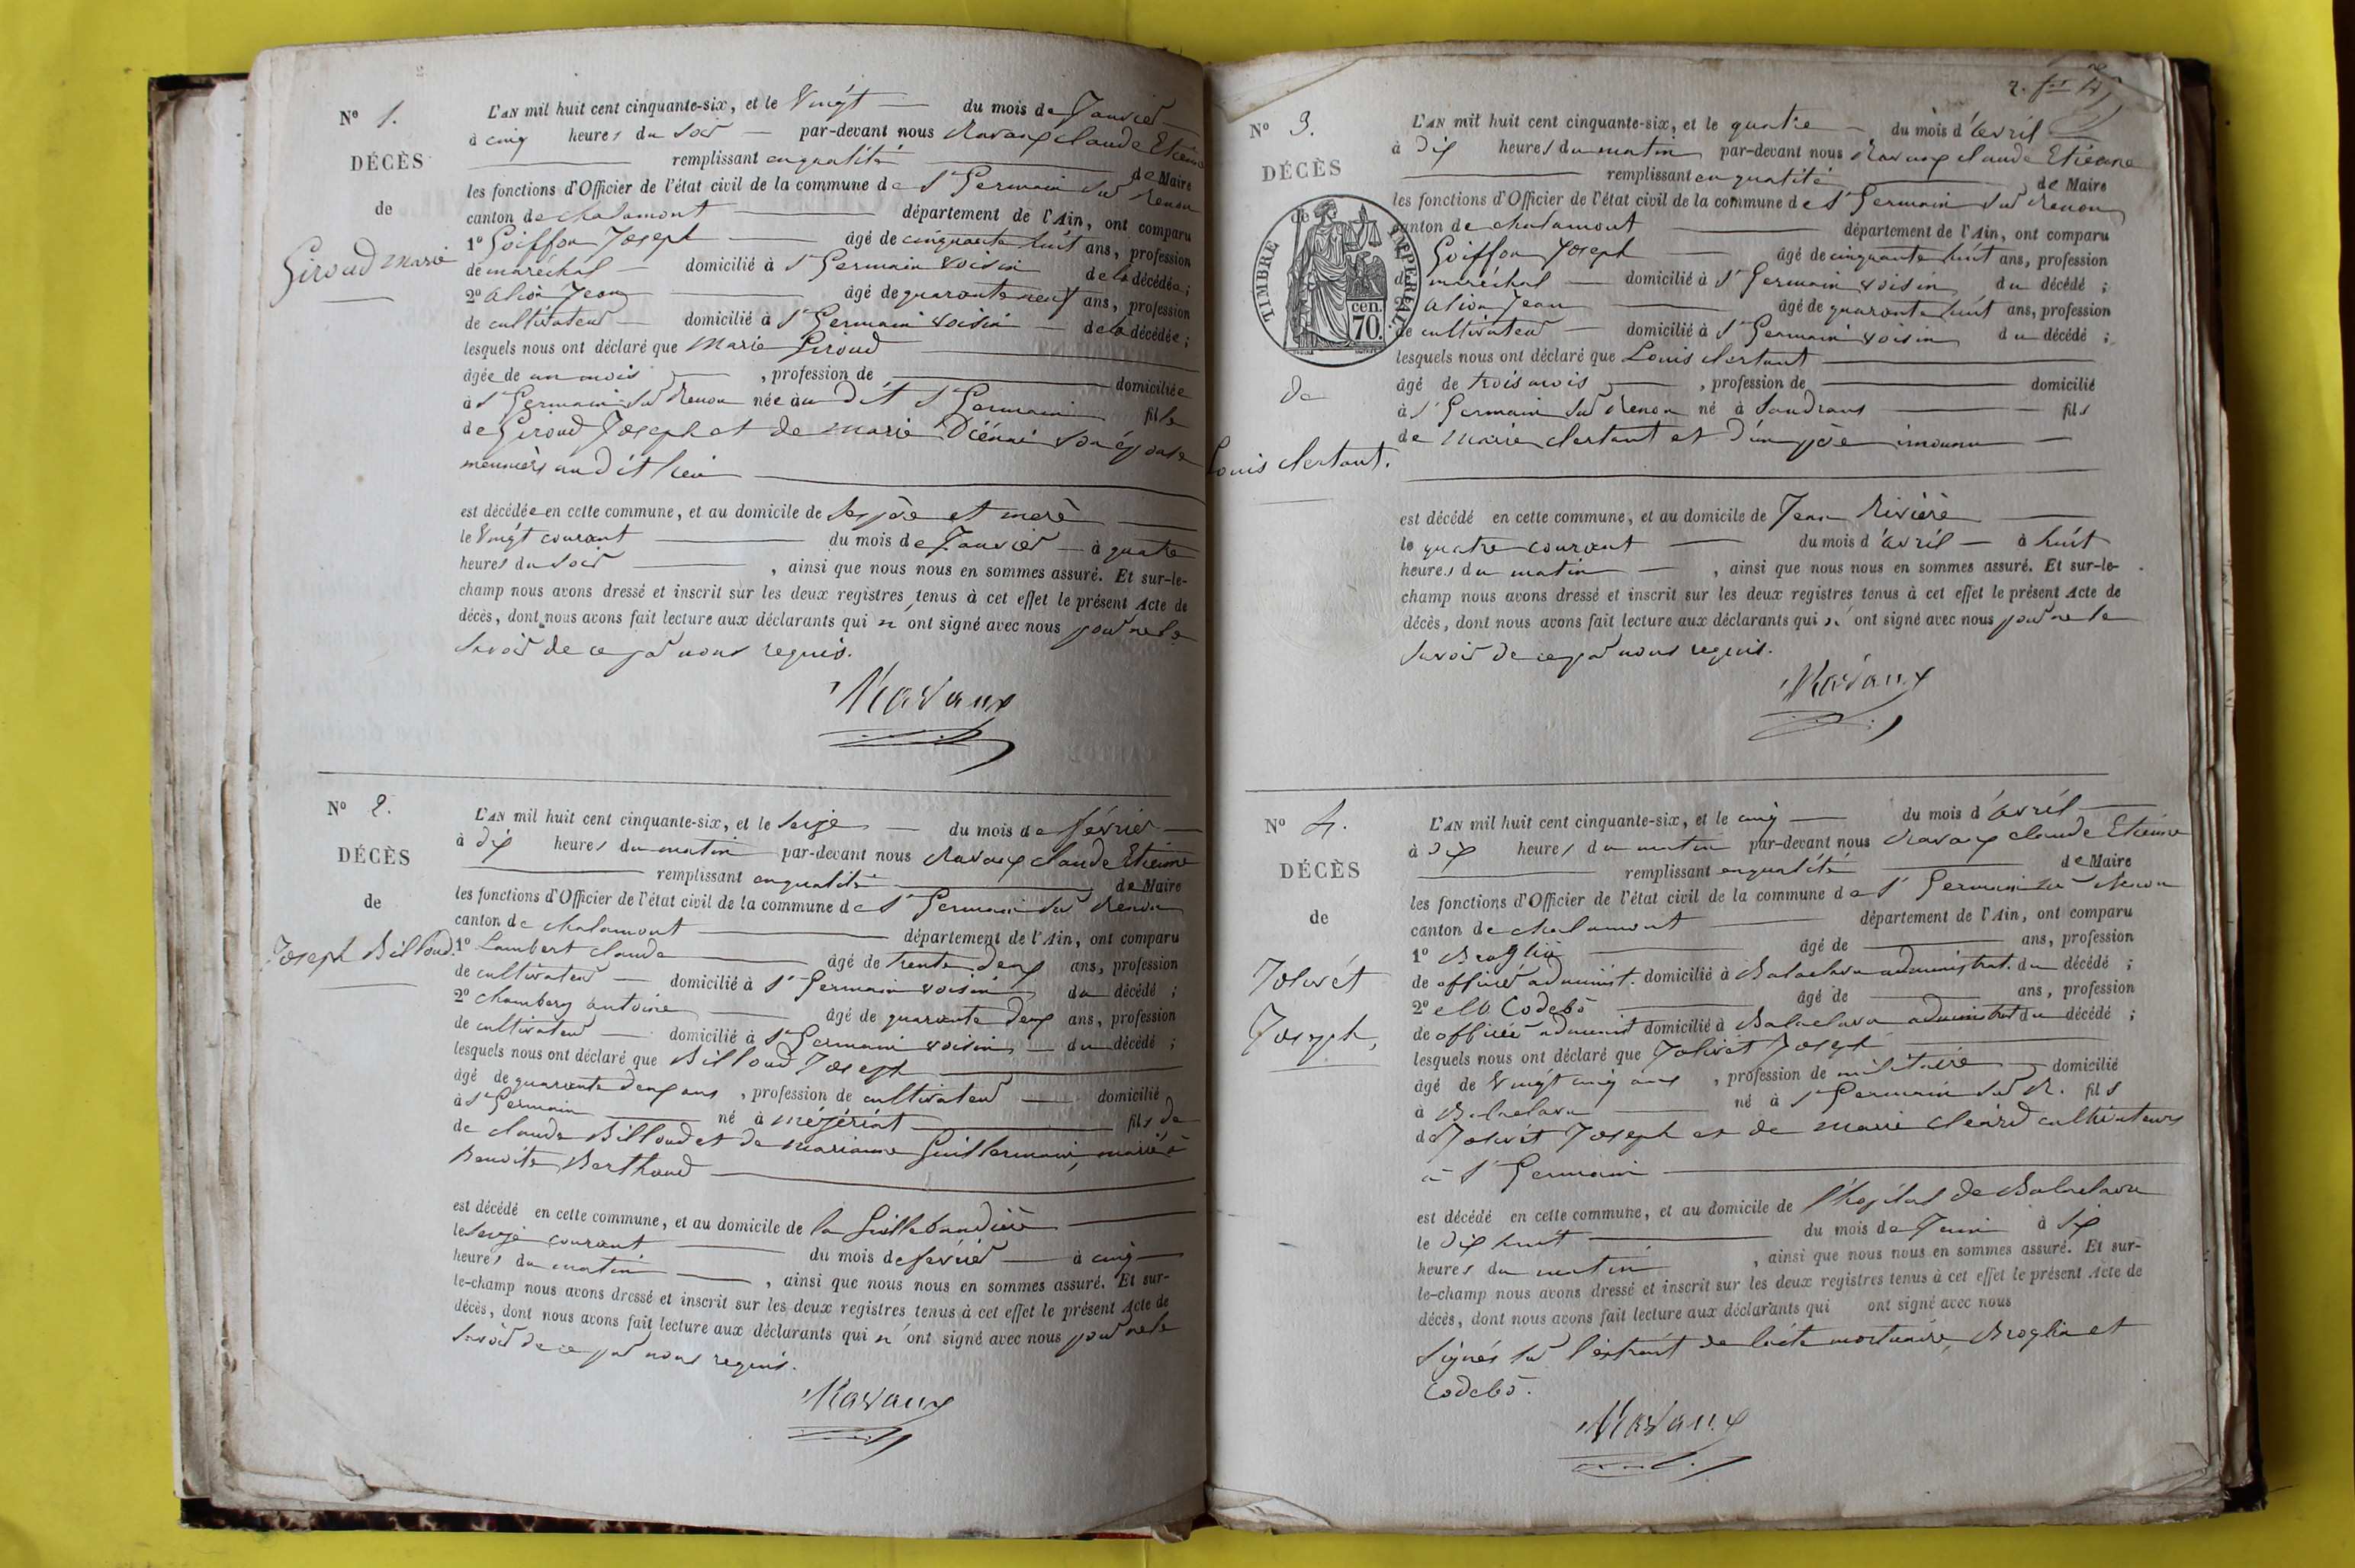 Nº 1.
DÉCÈS
de
Giroud Marie
L'AN mil huit cent cinquante-six, et le Vingt du mois de Janvier
à cinq heures du soir par-devant nous Ravaux Claude Etienne
remplissant en qualité de Maire
les fonctions d'Officier de l'état civil de la commune de St Germain sur Renon
canton de Chalamont département de l'Ain, ont comparu
1º Goiffon Joseph âgé de cinquante huit ans, profession
de maréchal domicilié à St Germain voisin de la décédée;
2º Alion Jean âgé de quarante neuf ans, profession
de cultivateur domicilié à St Germain voisin de la décédée;
lesquels nous ont déclaré que Marie Giroud
âgée de un mois , profession de domiciliée
à St Germain sur Renon née au dit St Germain fille
de Giroud Joseph et de Marie son épouse
meuniers au dit lieu
est décédée en cette commune, et au domicile de ses père et mère
le Vingt courant du mois de Janvier à quatre
heures du soir , ainsi que nous nous en sommes assuré. Et sur-le-
champ nous avons dressé et inscrit sur les deux registres tenus à cet effet le présent Acte de
décès, dont nous avons fait lecture aux déclarants qui n'ont signé avec nous pour ne le
savoir de ce par nous requis.
Ravaux
Nº 2.
DÉCÈS
de
Joseph Billoud.
L'AN mil huit cent cinquante-six, et le seize du mois de février
à dix heures du matin par-devant nous Ravaux Claude Etienne
remplissant en qualité de Maire
les fonctions d'Officier de l'état civil de la commune de St Germain sur Renon
canton de Chalamont département de l'Ain, ont comparu
1º Lambert Claude âgé de trente deux ans, profession
de cultivateur domicilié à St Germain voisin du décédé;
2º Chambery Antoine âgé de quarante deux ans, profession
de cultivateur domicilié à St Germain voisin du décédé;
lesquels nous ont déclaré que Billoud Joseph
âgé de quarante deux ans , profession de cultivateur domicilié
à St Germain né à Mézériat fils de
de Claude Billoud et de Marianne Guillermain, marié à
Benoite Berthoud
est décédé en cette commune, et au domicile de la
le seize courant du mois de février à cinq
heures du matin , ainsi que nous nous en sommes assuré. Et sur-
le-champ nous avons dressé et inscrit sur les deux registres tenus à cet effet le présent Acte de
décès, dont nous avons fait lecture aux déclarants qui n'ont signé avec nous pour ne le
savoir de ce par nous requis.
Ravaux
Nº 3.
DÉCÈS
de
TIMBRE IMPÉRIAL
cen.
70.
de
Louis Clertant.
L'AN mil huit cent cinquante-six, et le quatre du mois d'avril
à dix heures du matin par-devant nous Ravaux Claude Etienne
remplissant en qualité de Maire
les fonctions d'Officier de l'état civil de la commune de St Germain sur Renon
canton de Chalamont département de l'Ain, ont comparu
Goiffon Joseph âgé de cinquante huit ans, profession
de maréchal domicilié à St Germain voisin du décédé;
2º Alion Jean âgé de quarante huit ans, profession
de cultivateur domicilié à St Germain voisin du décédé;
lesquels nous ont déclaré que Louis Clertant
âgé de trois mois , profession de domicilié
à St Germain sur Renon né à Sandrans fils
de Marie Clertant et d'un père inconnu
est décédé en cette commune, et au domicile de Jean Rivière
le quatre courant du mois d'avril à huit
heures du matin , ainsi que nous nous en sommes assuré. Et sur-le-
champ nous avons dressé et inscrit sur les deux registres tenus à cet effet le présent Acte de
décès, dont nous avons fait lecture aux déclarants qui n'ont signé avec nous pour ne le
savoir de ce par nous requis.
Ravaux
Nº 4.
DÉCÈS
de
Jolivét
Joseph,
L'AN mil huit cent cinquante-six, et le cinq du mois d'avril
à dix heures du matin par-devant nous Ravaux Claude Etienne
remplissant en qualité de Maire
les fonctions d'Officier de l'état civil de la commune de St Germain sur Renon
canton de Chalamont département de l'Ain, ont comparu
1º Broglia âgé de ans, profession
de officier administ. domicilié à Balaclava administrat. du décédé;
2º Codebò âgé de ans, profession
de officier administ domicilié à Balaclava administrat du décédé;
lesquels nous ont déclaré que Jolivét Joseph
âgé de Vingt cinq ans , profession de militaire domicilié
à Balaclava né à St Germain sur R. fils
de Jolivét Joseph et de Marie cultivateurs
à St Germain
est décédé en cette commune, et au domicile de l'hopital de Balaclava
le dix huit du mois de Juin à six
heures du matin , ainsi que nous nous en sommes assuré. Et sur-
le-champ nous avons dressé et inscrit sur les deux registres tenus à cet effet le présent Acte de
décès, dont nous avons fait lecture aux déclarants qui ont signé avec nous
signés sur l'extrait de l'acte mortuaire, Broglia et
Codebò.
Ravaux